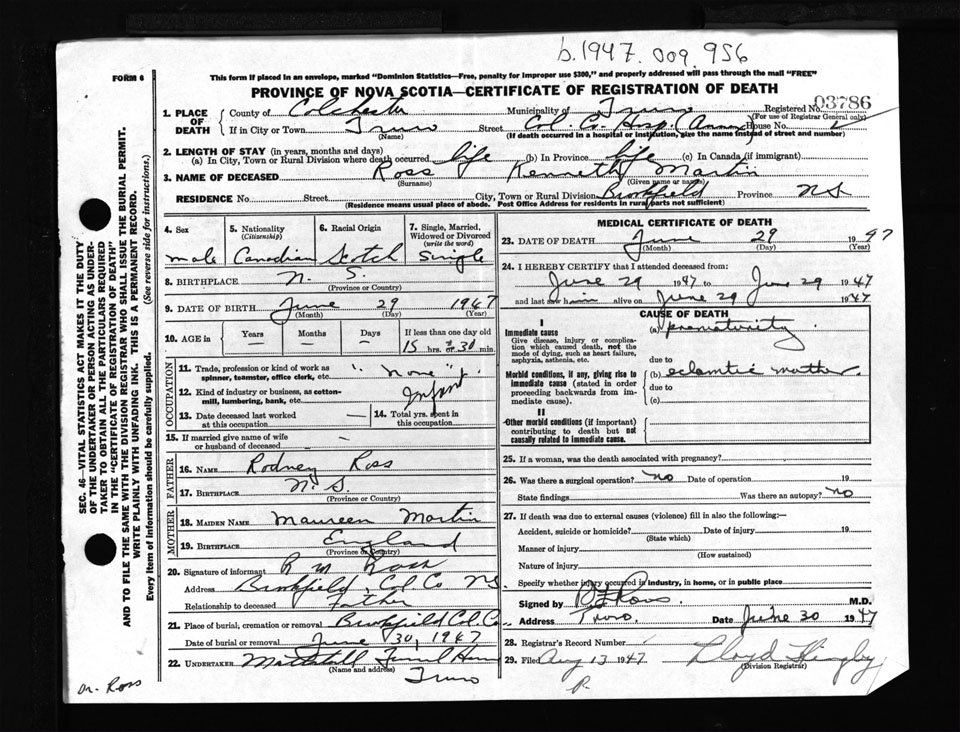 b.1947. 009 956
FORM 6
This form if placed in an envelope, marked "Dominion Statistics—Free, penalty for improper use $300," and properly addressed will pass through the mail "FREE"
PROVINCE OF NOVA SCOTIA—CERTIFICATE OF REGISTRATION OF DEATH
1. PLACE OF DEATH
County of Colchester Municipality of Truro Registered No. 03786
(For use of Registrar General only)
If in City or Town Truro Street Col. Co. Hosp. (Annex) House No.
(Name) (If death occurred in a hospital or institution, give the name instead of street and number)
2. LENGTH OF STAY (in years, months and days)
(a) In City, Town or Rural Division where death occurred life (b) In Province life (c) In Canada (if immigrant)
3. NAME OF DECEASED Ross Kenneth Martin
(Surname) (Given name or names)
RESIDENCE No. Street City, Town or Rural Division Brookfield Province N.S.
(Residence means usual place of abode. Post Office Address for residents in rural parts not sufficient)
4. Sex
male
5. Nationality (Citizenship)
Canadian
6. Racial Origin
Scotch
7. Single, Married, Widowed or Divorced (write the word)
Single
8. BIRTHPLACE N. S.
(Province or Country)
9. DATE OF BIRTH June 29 1947
(Month) (Day) (Year)
10. AGE in
Years Months Days If less than one day old
— — — 15 hrs. 30 min.
OCCUPATION
11. Trade, profession or kind of work as spinner, teamster, office clerk, etc. "None"
12. Kind of industry or business, as cotton-mill, lumbering, bank, etc. Infant
13. Date deceased last worked at this occupation —
14. Total yrs. spent in this occupation
15. If married give name of wife or husband of deceased —
FATHER
16. NAME Rodney Ross
17. BIRTHPLACE N. S.
(Province or Country)
MOTHER
18. MAIDEN NAME Maureen Martin
19. BIRTHPLACE England
(Province or Country)
20. Signature of informant R M Ross
Address Brookfield, Col. Co NS
Relationship to deceased Father
21. Place of burial, cremation or removal Brookfield Col. Co.
Date of burial or removal June 30, 1947
22. UNDERTAKER
(Name and address)
Truro
MEDICAL CERTIFICATE OF DEATH
23. DATE OF DEATH June 29 1947
(Month) (Day) (Year)
24. I HEREBY CERTIFY that I attended deceased from:
June 29 1947 to June 29 1947
and last saw him alive on June 29 1947
CAUSE OF DEATH
I
Immediate cause
Give disease, injury or complication which caused death, not the mode of dying, such as heart failure, asphyxia, asthenia, etc.
(a) prematurity
due to
Morbid conditions, if any, giving rise to immediate cause (stated in order proceeding backwards from immediate cause).
(b) eclamtic mother.
due to
(c)
II
Other morbid conditions (if important) contributing to death but not causally related to immediate cause.
25. If a woman, was the death associated with pregnancy?
26. Was there a surgical operation? no Date of operation 19
State findings Was there an autopsy? no
27. If death was due to external causes (violence) fill in also the following:—
Accident, suicide or homicide? Date of injury 19
(State which)
Manner of injury
(How sustained)
Nature of injury
Specify whether injury occurred in industry, in home, or in public place
Signed by Ross M.D.
Address Truro. Date June 30 1947
28. Registrar's Record Number
29. Filed Aug 13 1947 Lloyd
(Division Registrar)
P.
Dr. Ross
SEC. 46—VITAL STATISTICS ACT MAKES IT THE DUTY
OF THE UNDERTAKER OR PERSON ACTING AS UNDER-
TAKER TO OBTAIN ALL THE PARTICULARS REQUIRED
IN THE "CERTIFICATE OF REGISTRATION OF DEATH"
AND TO FILE THE SAME WITH THE DIVISION REGISTRAR WHO SHALL ISSUE THE BURIAL PERMIT.
WRITE PLAINLY WITH UNFADING INK. THIS IS A PERMANENT RECORD.
Every item of information should be carefully supplied. (See reverse side for instructions.)